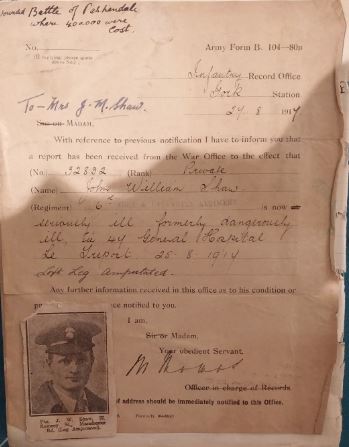 wounded Battle of Pashendale
where 400000 were
lost.
No.
Army Form B. 104—80a
Infantry Record Office
York Station
29. 8 1917
To - Mrs J. M. Shaw.
Sir or MADAM,
With reference to previous notification I have to inform you that
a report has been received from the War Office to the effect that
(No.) 32832 (Rank) Private
(Name) John William Shaw
(Regiment) is now
seriously ill formerly dangerously
ill, at 47 General Hospital
Le Treport 25 8 1917
Left Leg Amputated.
Any further information received in this office as to his condition or
notified to you.
I am,
Sir or Madam,
Your obedient Servant,
Officer in charge of Records.
of address should be immediately notified to this Office.
Pte. J. W. Shaw,
Manchester
Rd. (Leg Amputated).